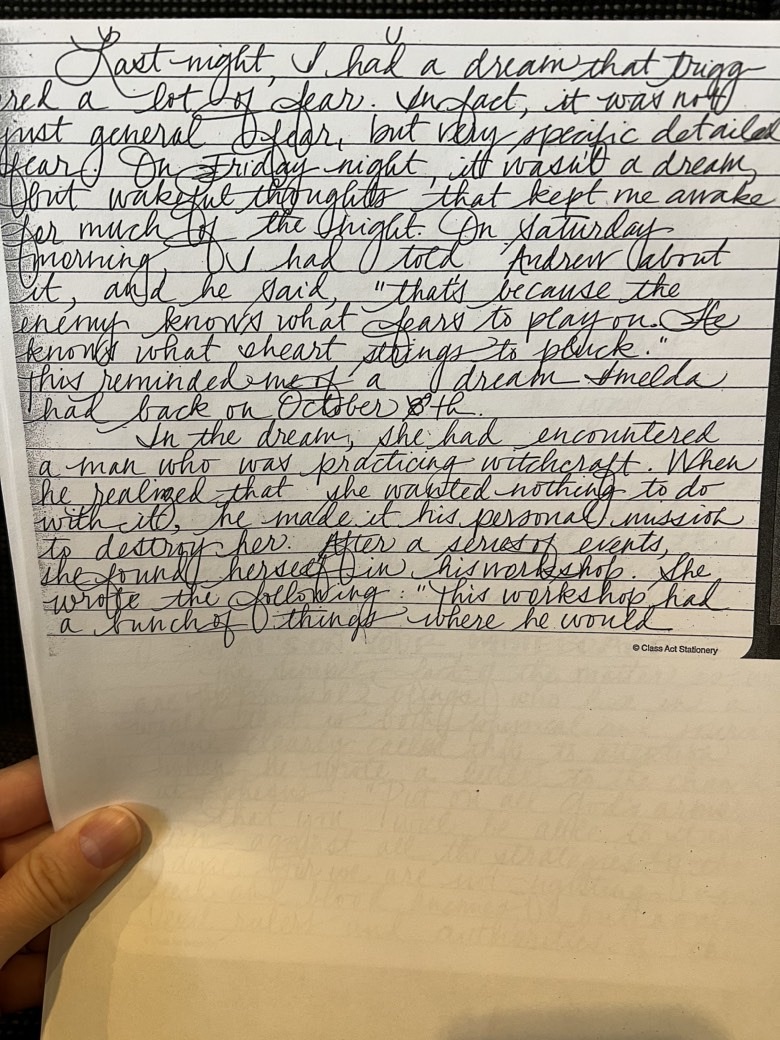 Last night, I had a dream that trigg-
red a lot of fear. In fact, it was not
just general fear, but very specific detailed
fear. On Friday night, it wasn't a dream,
but wakeful thoughts that kept me awake
for much of the night. On Saturday
morning, I had told Andrew about
it, and he said, "that's because the
enemy knows what fears to play on. He
knows what heart strings to pluck."
This reminded me of a dream Imelda
had back on October 8th.
In the dream, she had encountered
a man who was practicing witchcraft. When
he realized that she wanted nothing to do
with it, he made it his personal mission
to destroy her. After a series of events,
she found herself in his workshop. She
wrote the following: "This workshop had
a bunch of things where he would
© Class Act Stationery